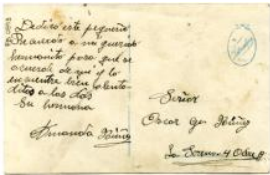 Dedico este pequeño
Recuerdo a mi querido
hermanito para que se
acuerde de mi y lo
encuentre bien
ditos a los dos
Su hermana
Amanda Núñez
Señor
Oscar Núñez
La Serena